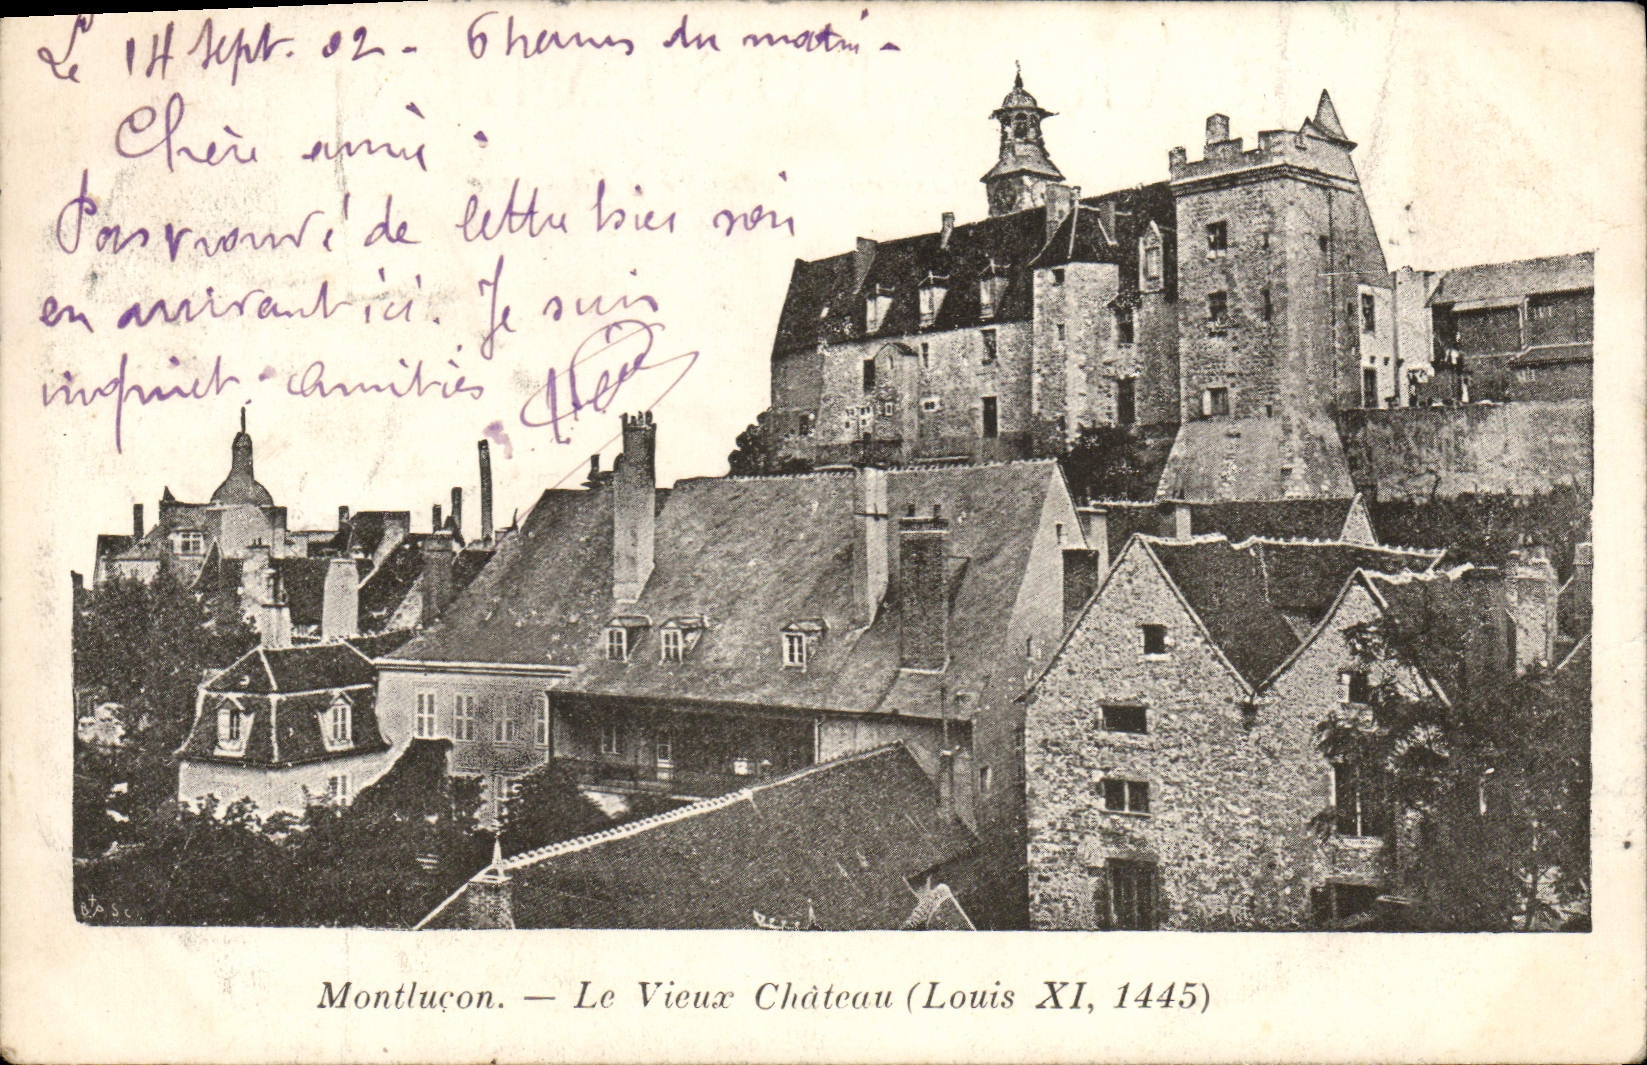 Le 14 Sept. 02 - 6 heures du matin -
Chère amie .
Pas trouvé de lettre hier soir
en arrivant ici. Je suis
inquiet. Amitiés
B+P Sc.
Montluçon. — Le Vieux Château (Louis XI, 1445)